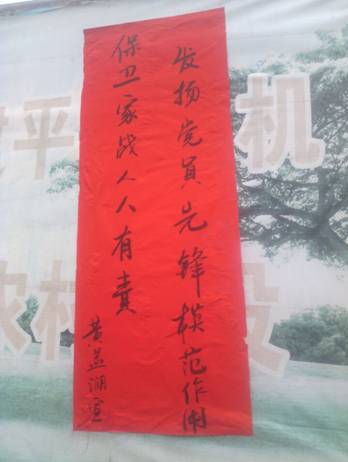 发扬党员先锋模范作用
保卫家战人人有责
黄益湖宣
平
机
农村
设